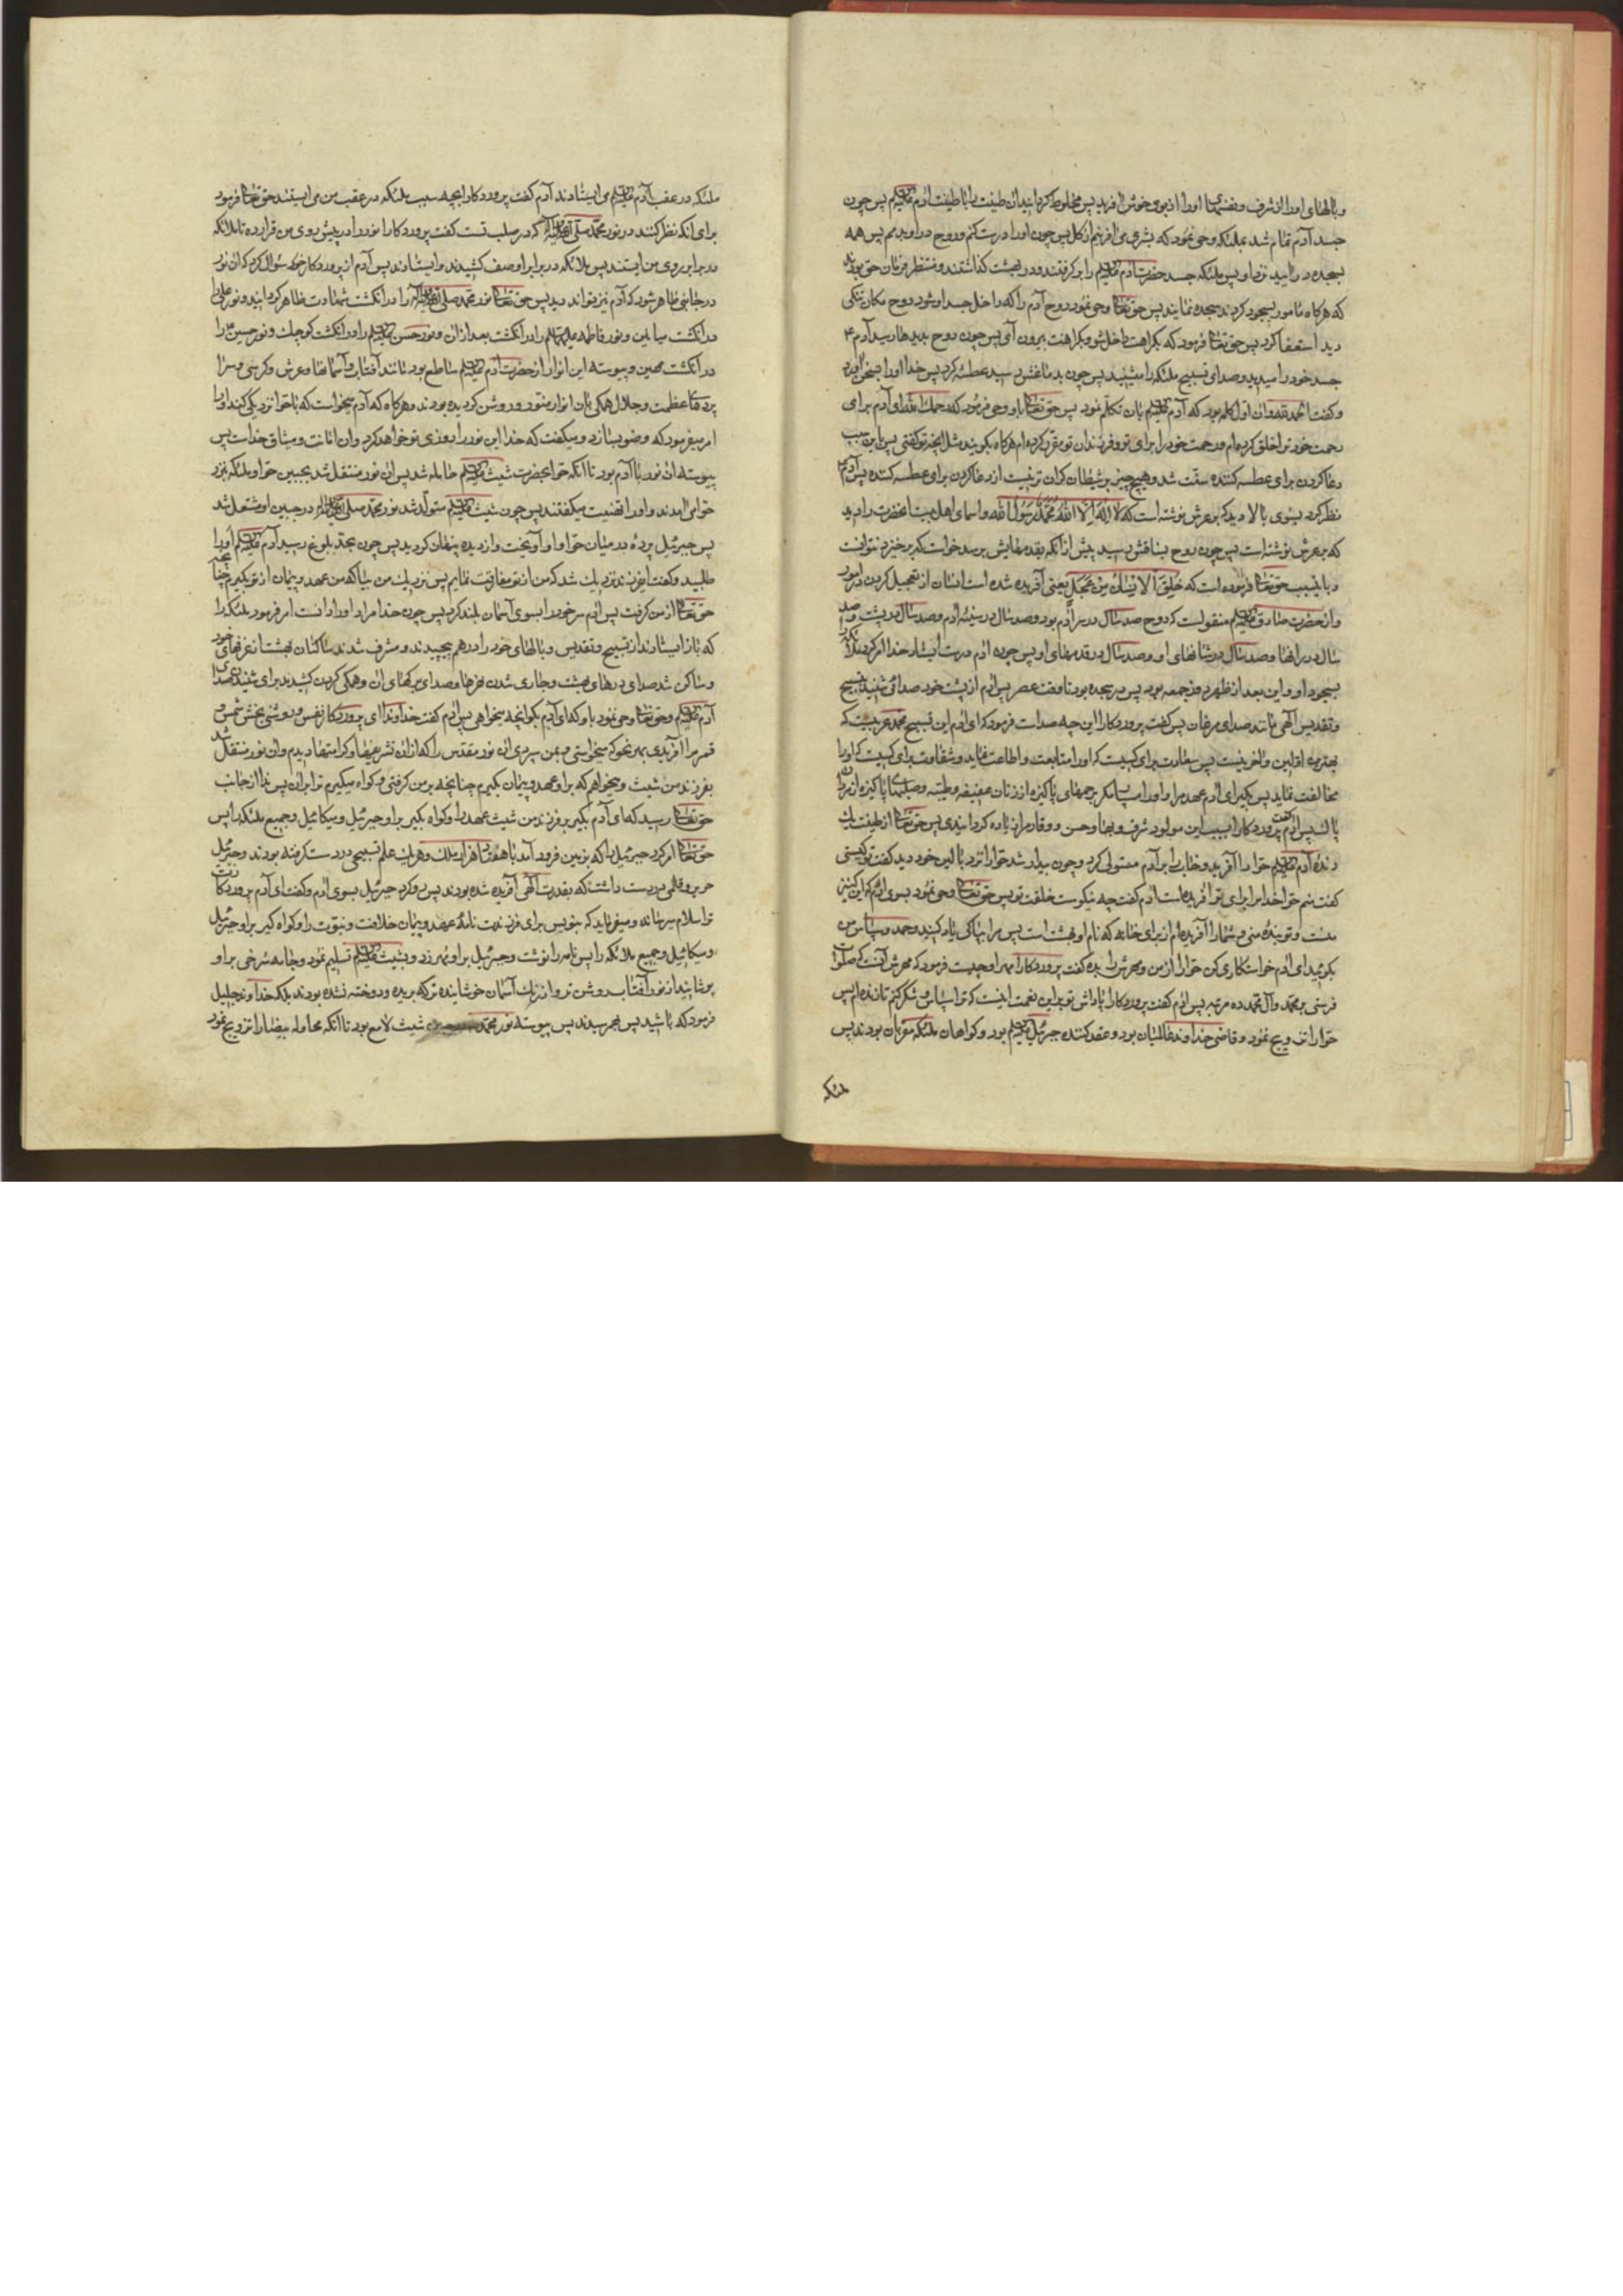 و بالهای او را از شرف و نفسهای او را از بوی خوش آفرید پس مخلوط گردانید آن طینت را با طینت آدم علیه السلام پس چون
جسد آدم تمام شد بملئکه وحی نمود که بشری می آفرینم از گل پس چون او را درست کنم و روح در او بدمم پس همه
بسجده در آیید نزد او پس ملئکه جسد حضرت آدم علیه السلام را برگرفتند و در بهشت گذاشتند و منتظر فرمان حق بودند
که هرگاه مأمور بسجود گردند سجده نمایند پس حق تعالی وحی نمود روح آدم را که داخل جسد او شود روح مکان تنگی
دید استعفا کرد پس حق تعالی فرمود که بکراهت داخل شو و بکراهت بیرون آی پس چون روح بدیدها رسید آدم ع
جسد خود را میدید و صدای تسبیح ملئکه را میشنید پس چون بدماغش رسید عطسه کرد پس خدا او را بسخن آورد
و گفت الحمد لله و آن اول کلمه بود که آدم علیه السلام بآن تکلم نمود پس حق تعالی باو وحی فرمود که رحمك الله ای آدم برای
رحمت خود ترا خلق کرده ام و رحمت خود را برای تو و فرزندان تو مقرر کرده ام هرگاه بگویند مثل آنچه تو گفتی پس باین سبب
دعا کردن برای عطسه کننده سنت شد و هیچ چیز بر شیطان گران تر نیست از دعا کردن برای عطسه کننده پس آدم
نظر کرد بسوی بالا دید که بر عرش نوشته است که لا اله الا الله محمد رسول الله و اسمای اهل بیت آنحضرت را دید
که بر عرش نوشته است پس چون روح بساقش رسید پیش از آنکه بقدمهایش برسد خواست که برخیزد نتوانست
و باین سبب حق تعالی فرموده است که خلق الانسان من عجل یعنی آفریده شده است انسان از تعجیل کردن در امور
و از حضرت صادق علیه السلام منقولست که روح صد سال در سر آدم بود و صد سال در سینه آدم و صد سال در پشت و صد
سال در رانها و صد سال در ساقهای او و صد سال در قدمهای او پس چون آدم درست ایستاد خدا امر کرد ملائکه را
بسجود او و این بعد از ظهر روز جمعه بود پس در سجده بودند تا وقت عصر پس آدم از پشت خود صدائی شنید تسبیح
و تقدیس الهی مانند صدای مرغان پس گفت پروردگارا این چه صداست فرمود که ای آدم این تسبیح محمد عربیست که
بهترین اولین و آخرینست پس سعادت برای کسیست که او را متابعت و اطاعت نماید و شقاوت برای کسیست که او را
مخالفت نماید پس بگیر ای آدم عهد مرا و او را مسپار مگر برحمهای پاکیزه از زنان عفیفه و طیبه و صلبهای پاکیزه از مردان
پاك پس آدم گفت پروردگارا بسبب این مولود شرف و بها و حسن و وقار مرا زیاده گردانیدی پس حق تعالی از طینت یك
دنده آدم علیه السلام حوا را آفرید و خواب را بر آدم مستولی کرد و چون بیدار شد حوا را نزد بالین خود دید گفت تو کیستی
گفت منم حوا خدا مرا برای تو آفریده است آدم گفت چه نیکوست خلقت تو پس حق تعالی وحی نمود بسوی آدم که این کنیز
منست و تو بنده منی و شما را آفریده ام از برای خانه که نام او بهشت است پس مرا بپاکی یاد کنید و حمد و سپاس من
بگوئید ای آدم خواستگاری کن حوا را از من و مهرش را بده گفت پروردگارا مهر او چیست فرمود که مهرش آنست که صلوات
فرستی بر محمد و آل محمد ده مرتبه پس آدم گفت پروردگارا پاداش تو بر این نعمت اینست که ترا سپاس و شکر کنم تا زنده ام پس
حوا را تزویج نمود و قاضی خداوند عالمیان بود و عقد کننده جبرئیل علیه السلام بود و گواهان ملئکه مقربان بودند پس
ملئکه
ملئکه در عقب آدم علیه السلام می ایستادند آدم گفت پروردگارا بچه سبب ملئکه در عقب من می ایستند حق تعالی فرمود
برای آنکه نظر کنند در نور محمد صلی الله علیه و آله که در صلب تست گفت پروردگارا نور را در پیش روی من قرار ده تا ملائکه
در برابر روی من ایستند پس ملائکه در برابر او صف کشیدند و ایستادند پس آدم از پروردگار خود سؤال کرد که آن نور
در جائی ظاهر شود که آدم نیز تواند دید پس حق تعالی نور محمد صلی الله علیه و آله را در انگشت شهادت ظاهر گردانید و نور علی را
در انگشت میانین و نور فاطمه علیها السلام را در انگشت بعد از آن و نور حسن علیه السلام را در انگشت کوچك و نور حسین را
در انگشت مهین و پیوسته این انوار از حضرت آدم علیه السلام ساطع بود مانند آفتاب و آسمانها و عرش و کرسی و سرا
پردهای عظمت و جلال همگی بآن انوار منور و روشن گردیده بودند و هرگاه که آدم میخواست که با حوا نزدیکی کند او را
امر میفرمود که وضو بسازد و میگفت که خدا این نور را روزی تو خواهد کرد و آن امانت و میثاق خداست پس
پیوسته آن نور با آدم بود تا آنکه حوا بحضرت شیث علیه السلام حامله شد پس آن نور منتقل شد بجبین حوا و ملئکه بنزد
حوا می آمدند و او را تهنیت میگفتند پس چون شیث علیه السلام متولد شد نور محمد صلی الله علیه و آله در جبین او مشتعل شد
پس جبرئیل پرده در میان حوا و او آویخت و از دیده پنهان گردید پس چون بحد بلوغ رسید آدم علیه السلام او را
طلبید و گفت ای فرزند نزدیك شد که من از تو مفارقت نمایم پس نزدیك من بیا که من عهد و پیمان از تو بگیرم چنانچه
حق تعالی از من گرفت پس آدم سر خود را بسوی آسمان بلند کرد پس چون خدا مراد او را دانست امر فرمود ملئکه را
که باز ایستادند از تسبیح و تقدیس و بالهای خود را درهم پیچیدند و مشرف شدند ساکنان بهشت از غرفهای خود
و ساکن شد صدای درهای بهشت و جاری شدن نهرها و صدای برگهای آن و همگی گردن کشیدند برای شنیدن صدای
آدم علیه السلام و حق تعالی وحی نمود باو که ای آدم بگو آنچه میخواهی پس آدم گفت خداوندا ای پروردگار نفس و روشنی بخش شمس و
قمر مرا آفریدی بهر نحو که میخواستی و بمن سپردی آن نور مقدس را که از آن تشریفها و کرامتها دیدم و آن نور منتقل شد
بفرزند من شیث و میخواهم که بر او عهد و پیمان بگیرم چنانچه بر من گرفتی و گواه میگیرم ترا بر آن پس ندا از جانب
حق تعالی رسید که ای آدم بگیر بر فرزند من شیث عهد را و گواه بگیر بر او جبرئیل و میکائیل و جمیع ملئکه را پس
حق تعالی امر کرد جبرئیل را که بزمین فرود آمد با هفتاد هزار ملك و هر یك علم تسبیحی در دست گرفته بودند و جبرئیل
حریر و قلمی در دست داشت که بقدرت الهی آفریده شده بودند پس رو کرد جبرئیل بسوی آدم و گفت ای آدم پروردگارت
ترا سلام میرساند و میفرماید که بنویس برای فرزندت نامه عهد و پیمان خلافت و نبوت را و گواه گیر بر او جبرئیل
و میکائیل و جمیع ملائکه را پس نامه را نوشت و جبرئیل بر او مهر زد و بشیث علیه السلام تسلیم نمود و جامه سرخی بر او
پوشانید از نور آفتاب روشن تر و از رنك آسمان خوشاینده تر که بریده و دوخته نشده بودند بلکه خداوند جلیل
فرمود که باشید پس بهم رسیدند پس پیوسته نور محمد شیث لامع بود تا آنکه محاوله بیضا را تزویج نمود